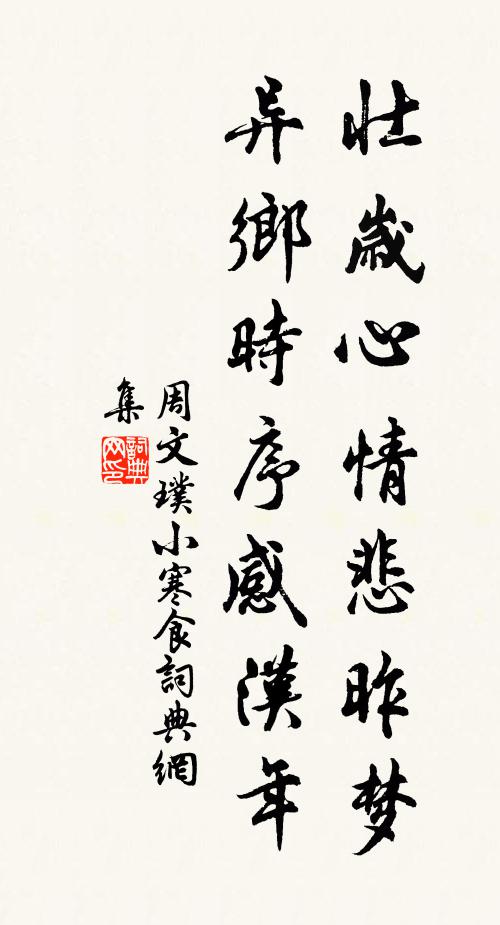 壮歲心情悲昨梦
异鄉時序感漢年
周文璞小寒食詞典網
集
詞典網印